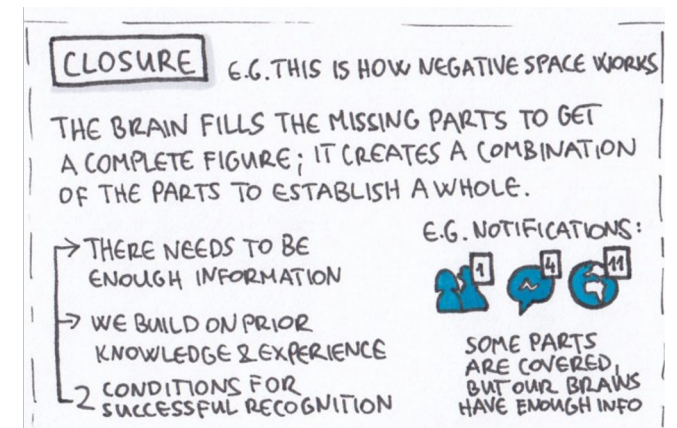 CLOSURE E.G. THIS IS HOW NEGATIVE SPACE WORKS
THE BRAIN FILLS THE MISSING PARTS TO GET
A COMPLETE FIGURE; IT CREATES A COMBINATION
OF THE PARTS TO ESTABLISH A WHOLE.
THERE NEEDS TO BE
ENOUGH INFORMATION
WE BUILD ON PRIOR
KNOWLEDGE & EXPERIENCE
2 CONDITIONS FOR
SUCCESSFUL RECOGNITION
E.G. NOTIFICATIONS:
1 4 11
SOME PARTS
ARE COVERED,
BUT OUR BRAINS
HAVE ENOUGH INFO